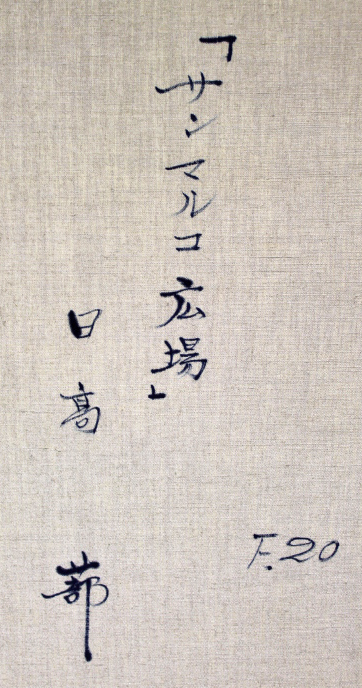 「サンマルコ広場」
日高
F.20